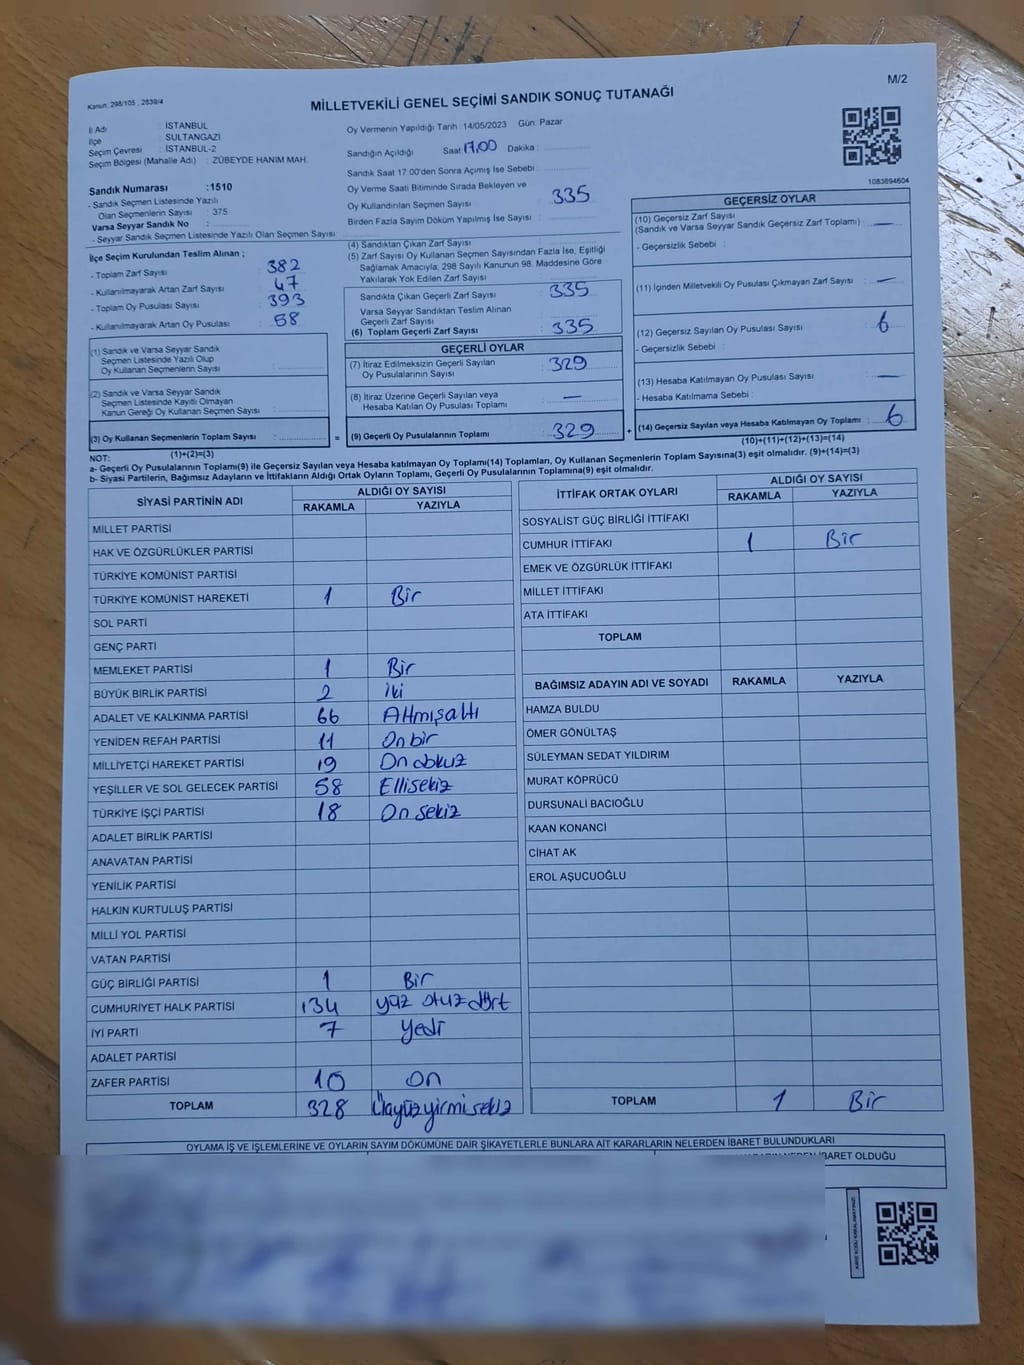 Kanun: 298/105 , 2839/4
MİLLETVEKİLİ GENEL SEÇİMİ SANDIK SONUÇ TUTANAĞI
M/2
İl Adı : İSTANBUL
İlçe : SULTANGAZİ
Seçim Çevresi : İSTANBUL-2
Seçim Bölgesi (Mahalle Adı) : ZÜBEYDE HANIM MAH.
Sandık Numarası : 1510
- Sandık Seçmen Listesinde Yazılı
Olan Seçmenlerin Sayısı : 375
Varsa Seyyar Sandık No :
- Seyyar Sandık Seçmen Listesinde Yazılı Olan Seçmen Sayısı :
İlçe Seçim Kurulundan Teslim Alınan ;
- Toplam Zarf Sayısı : 382
- Kullanılmayarak Artan Zarf Sayısı : 47
- Toplam Oy Pusulası Sayısı : 393
- Kullanılmayarak Artan Oy Pusulası : 58
(1) Sandık ve Varsa Seyyar Sandık
Seçmen Listesinde Yazılı Olup
Oy Kullanan Seçmenlerin Sayısı :
(2) Sandık ve Varsa Seyyar Sandık
Seçmen Listesinde Kayıtlı Olmayan
Kanun Gereği Oy Kullanan Seçmen Sayısı :
(3) Oy Kullanan Seçmenlerin Toplam Sayısı :
(1)+(2)=(3)
Oy Vermenin Yapıldığı Tarih : 14/05/2023 Gün: Pazar
Sandığın Açıldığı Saat: 17.00 Dakika :
Sandık Saat 17.00'den Sonra Açılmış İse Sebebi :
Oy Verme Saati Bitiminde Sırada Bekleyen ve
Oy Kullandırılan Seçmen Sayısı : 335
Birden Fazla Sayım Döküm Yapılmış İse Sayısı :
(4) Sandıktan Çıkan Zarf Sayısı :
(5) Zarf Sayısı Oy Kullanan Seçmen Sayısından Fazla İse, Eşitliği
Sağlamak Amacıyla, 298 Sayılı Kanunun 98. Maddesine Göre
Yakılarak Yok Edilen Zarf Sayısı :
Sandıkta Çıkan Geçerli Zarf Sayısı : 335
Varsa Seyyar Sandıktan Teslim Alınan
Geçerli Zarf Sayısı :
(6) Toplam Geçerli Zarf Sayısı : 335
GEÇERLİ OYLAR
(7) İtiraz Edilmeksizin Geçerli Sayılan
Oy Pusulalarının Sayısı : 329
(8) İtiraz Üzerine Geçerli Sayılan veya
Hesaba Katılan Oy Pusulası Toplamı : —
= (9) Geçerli Oy Pusulalarının Toplamı : 329 +
1083694604
GEÇERSİZ OYLAR
(10) Geçersiz Zarf Sayısı
(Sandık ve Varsa Seyyar Sandık Geçersiz Zarf Toplamı) : —
- Geçersizlik Sebebi :
(11) İçinden Milletvekili Oy Pusulası Çıkmayan Zarf Sayısı : —
(12) Geçersiz Sayılan Oy Pusulası Sayısı : 6
- Geçersizlik Sebebi :
(13) Hesaba Katılmayan Oy Pusulası Sayısı : —
- Hesaba Katılmama Sebebi :
(14) Geçersiz Sayılan veya Hesaba Katılmayan Oy Toplamı : 6
(10)+(11)+(12)+(13)=(14)
NOT:
a- Geçerli Oy Pusulalarının Toplamı(9) ile Geçersiz Sayılan veya Hesaba katılmayan Oy Toplamı(14) Toplamları, Oy Kullanan Seçmenlerin Toplam Sayısına(3) eşit olmalıdır. (9)+(14)=(3)
b- Siyasi Partilerin, Bağımsız Adayların ve İttifakların Aldığı Ortak Oyların Toplamı, Geçerli Oy Pusulalarının Toplamına(9) eşit olmalıdır.
SİYASİ PARTİNİN ADI ALDIĞI OY SAYISI
RAKAMLA YAZIYLA
MİLLET PARTİSİ
HAK VE ÖZGÜRLÜKLER PARTİSİ
TÜRKİYE KOMÜNİST PARTİSİ
TÜRKİYE KOMÜNİST HAREKETİ 1 Bir
SOL PARTİ
GENÇ PARTİ
MEMLEKET PARTİSİ 1 Bir
BÜYÜK BİRLİK PARTİSİ 2 iki
ADALET VE KALKINMA PARTİSİ 66 Altmışaltı
YENİDEN REFAH PARTİSİ 11 Onbir
MİLLİYETÇİ HAREKET PARTİSİ 19 On dokuz
YEŞİLLER VE SOL GELECEK PARTİSİ 58 Ellisekiz
TÜRKİYE İŞÇİ PARTİSİ 18 On sekiz
ADALET BİRLİK PARTİSİ
ANAVATAN PARTİSİ
YENİLİK PARTİSİ
HALKIN KURTULUŞ PARTİSİ
MİLLİ YOL PARTİSİ
VATAN PARTİSİ
GÜÇ BİRLİĞİ PARTİSİ 1 Bir
CUMHURİYET HALK PARTİSİ 134 yüz otuz dört
İYİ PARTİ 7 Yedi
ADALET PARTİSİ
ZAFER PARTİSİ 10 On
TOPLAM 328 Üçyüzyirmisekiz
İTTİFAK ORTAK OYLARI ALDIĞI OY SAYISI
RAKAMLA YAZIYLA
SOSYALİST GÜÇ BİRLİĞİ İTTİFAKI
CUMHUR İTTİFAKI 1 Bir
EMEK VE ÖZGÜRLÜK İTTİFAKI
MİLLET İTTİFAKI
ATA İTTİFAKI
TOPLAM
BAĞIMSIZ ADAYIN ADI VE SOYADI RAKAMLA YAZIYLA
HAMZA BULDU
ÖMER GÖNÜLTAŞ
SÜLEYMAN SEDAT YILDIRIM
MURAT KÖPRÜCÜ
DURSUNALİ BACIOĞLU
KAAN KONANCİ
CİHAT AK
EROL AŞUCUOĞLU
TOPLAM 1 Bir
OYLAMA İŞ VE İŞLEMLERİNE VE OYLARIN SAYIM DÖKÜMÜNE DAİR ŞİKAYETLERLE BUNLARA AİT KARARLARIN NELERDEN İBARET BULUNDUKLARI
İBARET OLDUĞU